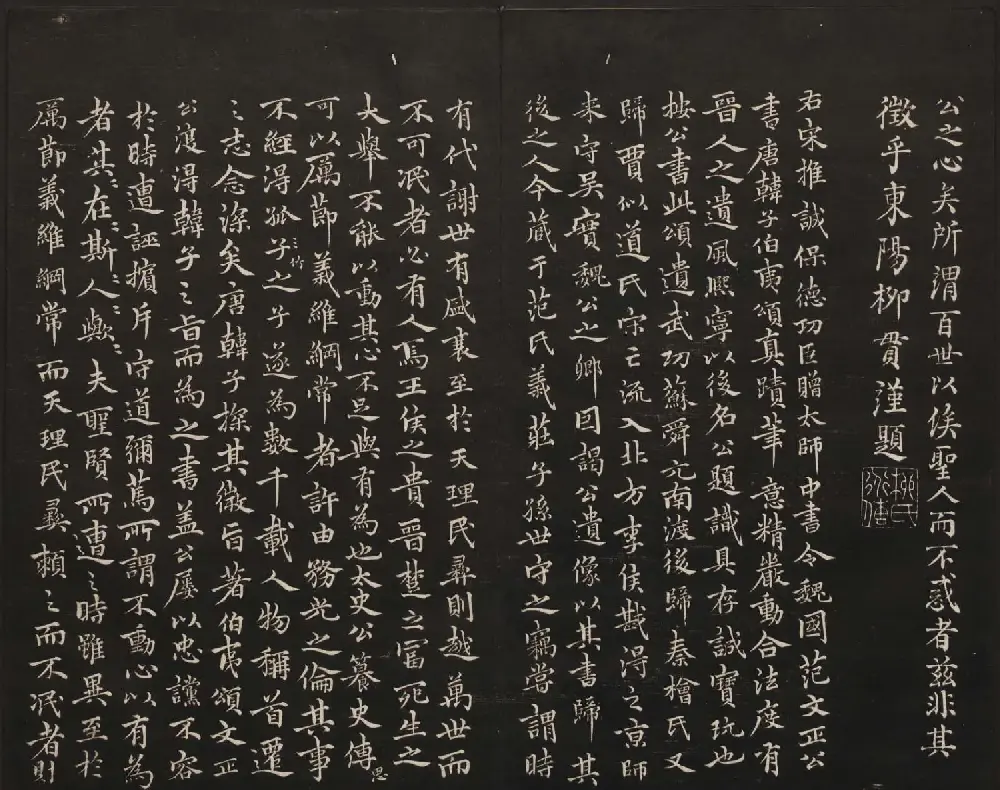 公之心矣所謂百世以俟聖人而不惑者茲非其
徵乎東陽柳貫謹題
柳氏
右宋推誠保德功臣贈太師中書令魏國范文正公
書唐韓子伯夷頌真蹟筆意精嚴動合法度有
晉人之遺風熈寧以後名公題識具存誠寶玩也
按公書此頌遺武功蘇舜元南渡後歸秦檜氏又
歸賈似道氏宋亡流入北方李侯戡得之京師
来守吴實魏公之鄉因謁公遺像以其書歸其
後之人今藏于范氏義莊子孫世守之竊嘗謂時
有代謝世有盛衰至於天理民彝則越萬世而
不可泯者必有人焉王侯之貴晉楚之富死生之
大舉不能以動其心不足與有為也太史公纂史傳思
可以厲節義維綱常者許由務光之倫其事
不經得孤竹之子之子遂為數千載人物稱首遷
之志念深矣唐韓子探其微旨著伯夷頌文正
公復得韓子之旨而為之書盖公屢以忠讜不容
於時遭誣擯斥守道彌篤所謂不動心以有為
者其在斯人歟夫聖賢所遭之時雖異至於
厲節義維綱常而天理民彝賴之而不泯者則